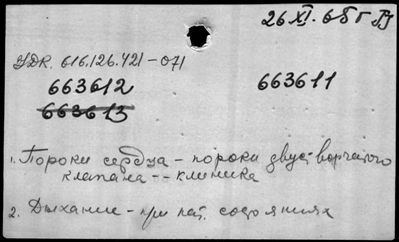 26 XI. 68 г
УДК. 616.126.421-071
663612 663611
663613
1. Пороки сердца - пороки двуст-ворчатого
клапана -- клиника
2. Дыхание - при пат. состояниях